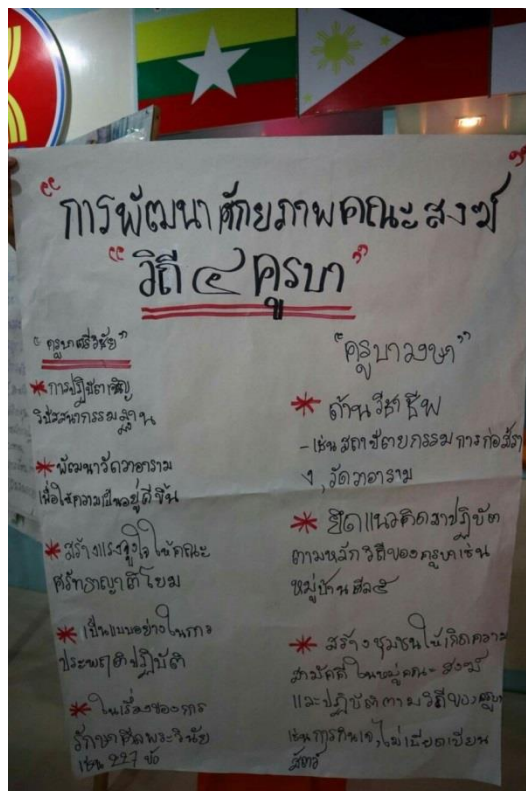 "การพัฒนาศักยภาพคณะสงฆ์"
"วิถี ๔ ครูบา"
"ครูบาศรีวิชัย"
* การปฏิบัติเจริญ
วิปัสสนากรรมฐาน
* พัฒนาวัดวาอาราม
เพื่อให้ความเป็นอยู่ดีขึ้น
* สร้างแรงจูงใจให้คณะ
ศรัทธาญาติโยม
* เป็นแบบอย่างในการ
ประพฤติปฏิบัติ
* ในเรื่องของการ
รักษาศีลพระวินัย
เช่น 227 ข้อ
"ครูบาวงษา"
* ด้านวิชาชีพ
- เช่น สถาปัตยกรรม การก่อสร้า
ง, วัดวาอาราม
* ยึดแนวคิดมาปฏิบัติ
ตามหลักวิถีของครูบา เช่น
หมู่บ้านศีล๕
* สร้างชุมชนให้เกิดความ
สามัคคีในหมู่คณะสงฆ์
และปฏิบัติตามวิถีของครูบา
เช่น การกินเจ, ไม่เบียดเบียน
สัตว์